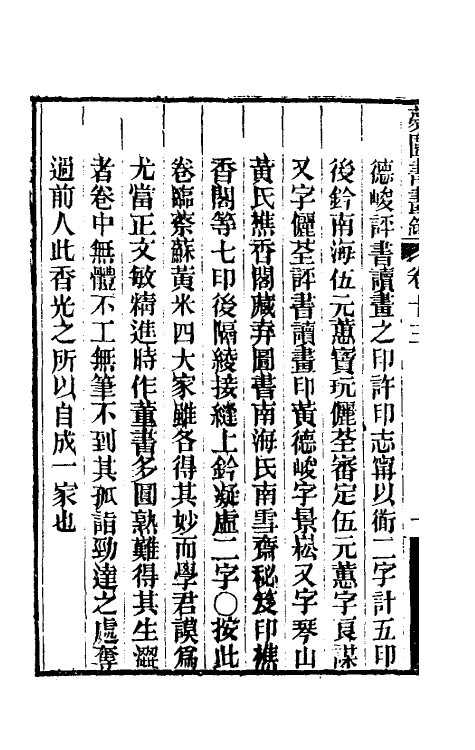 夢園書畫錄 卷十三
德峻評書讀畫之印許印志甯以銜二字計五印
後鈐南海伍元蕙寶玩儷荃審定伍元蕙字良謀
又字儷荃評書讀畫印黃德峻字景崧又字琴山
黃氏樵香閣藏弆圖書南海氏南雪齋秘笈印樵
香閣等七印後隔綾接縫上鈐凝虛二字○按此
卷臨蔡蘇黃米四大家雖各得其妙而學君謨爲
尤當正文敏精進時作董書多圓熟難得其生澀
者卷中無體不工無筆不到其孤詣勁達之處奪
過前人此香光之所以自成一家也